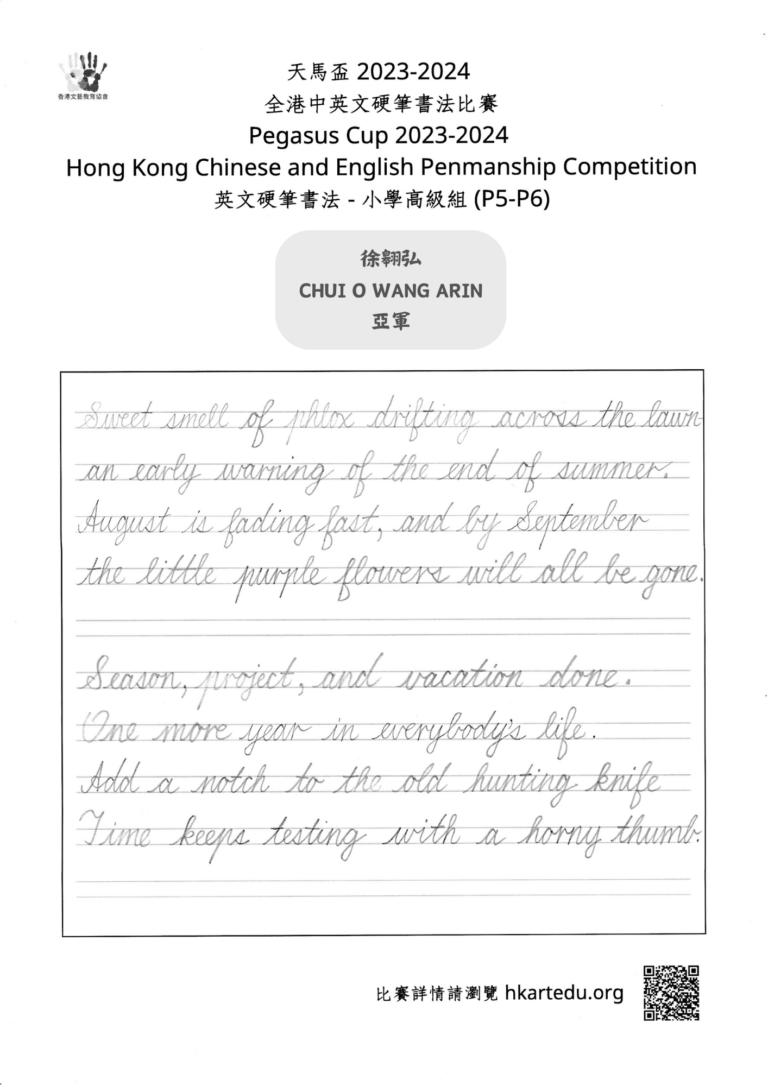 香港文藝教育協會
天馬盃 2023-2024
全港中英文硬筆書法比賽
Pegasus Cup 2023-2024
Hong Kong Chinese and English Penmanship Competition
英文硬筆書法 - 小學高級組 (P5-P6)
徐翱弘
CHUI O WANG ARIN
亞軍
Sweet smell of phlox drifting across the lawn-
an early warning of the end of summer.
August is fading fast, and by September
the little purple flowers will all be gone.
Season, project, and vacation done.
One more year in everybody's life.
Add a notch to the old hunting knife
Time keeps testing with a horny thumb.
比賽詳情請瀏覽 hkartedu.org